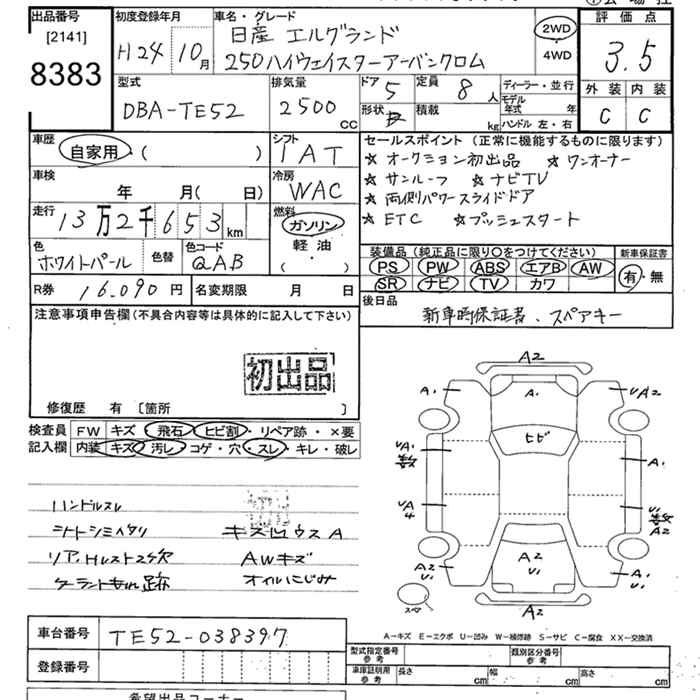 出品番号
[2141]
8383
初度登録年月
H24 10月
車名・グレード
日産 エルグランド
250ハイウェイスターアーバンクロム
2WD
4WD
評価点
3.5
外装 内装
C C
型式
DBA-TE52
排気量
2500 CC
ドア 5
定員 8人
形状
積載 kg
ディーラー・並行
モデル年式 年
ハンドル 左・右
車歴
自家用・( )
シフト
IAT
車検
年 月( 日)
冷房
WAC
走行
13万2千653km
燃料
ガソリン
軽油
( ・ )
色
ホワイトパール
色替
色コード
QAB
R券 16.090円
名変期限 月 日
セールスポイント(正常に機能するものに限ります)
☆ オークション初出品 ☆ ワンオーナー
☆ サンルーフ ☆ ナビTV
☆ 両側パワースライドドア
☆ ETC ☆プッシュスタート
装備品(純正品に限り○をつけてください)
PS PW ABS エアB AW
SR ナビ TV カワ
新車保証書
有・無
後日品
新車時保証書、スペアキー
注意事項申告欄(不具合内容等は具体的に記入して下さい)
初出品
修復歴 有 [箇所 ]
検査員記入欄
FW キズ・飛石・ヒビ割・リペア跡・×要
内装 キズ・汚レ・コゲ・穴・スレ・キレ・破レ
ハンドルスレ
シートシミヘタリ
キズLウスA
AWキズ
オイルにじみ
A2
A1 A1 UA2
ヒビ
UA1 A1
UA4 U1
A2
A2 U1
A2 U1
A1 U1
スペア
A2
A-キズ E-エクボ U-凹み W-補修跡 S-サビ C-腐食 XX-交換済
車台番号
TE52-038397
登録番号
型式指定番号
参考
類別区分番号
参考
車庫証明用
参考
長さ cm 幅 cm 高さ cm
希望出品コーナー